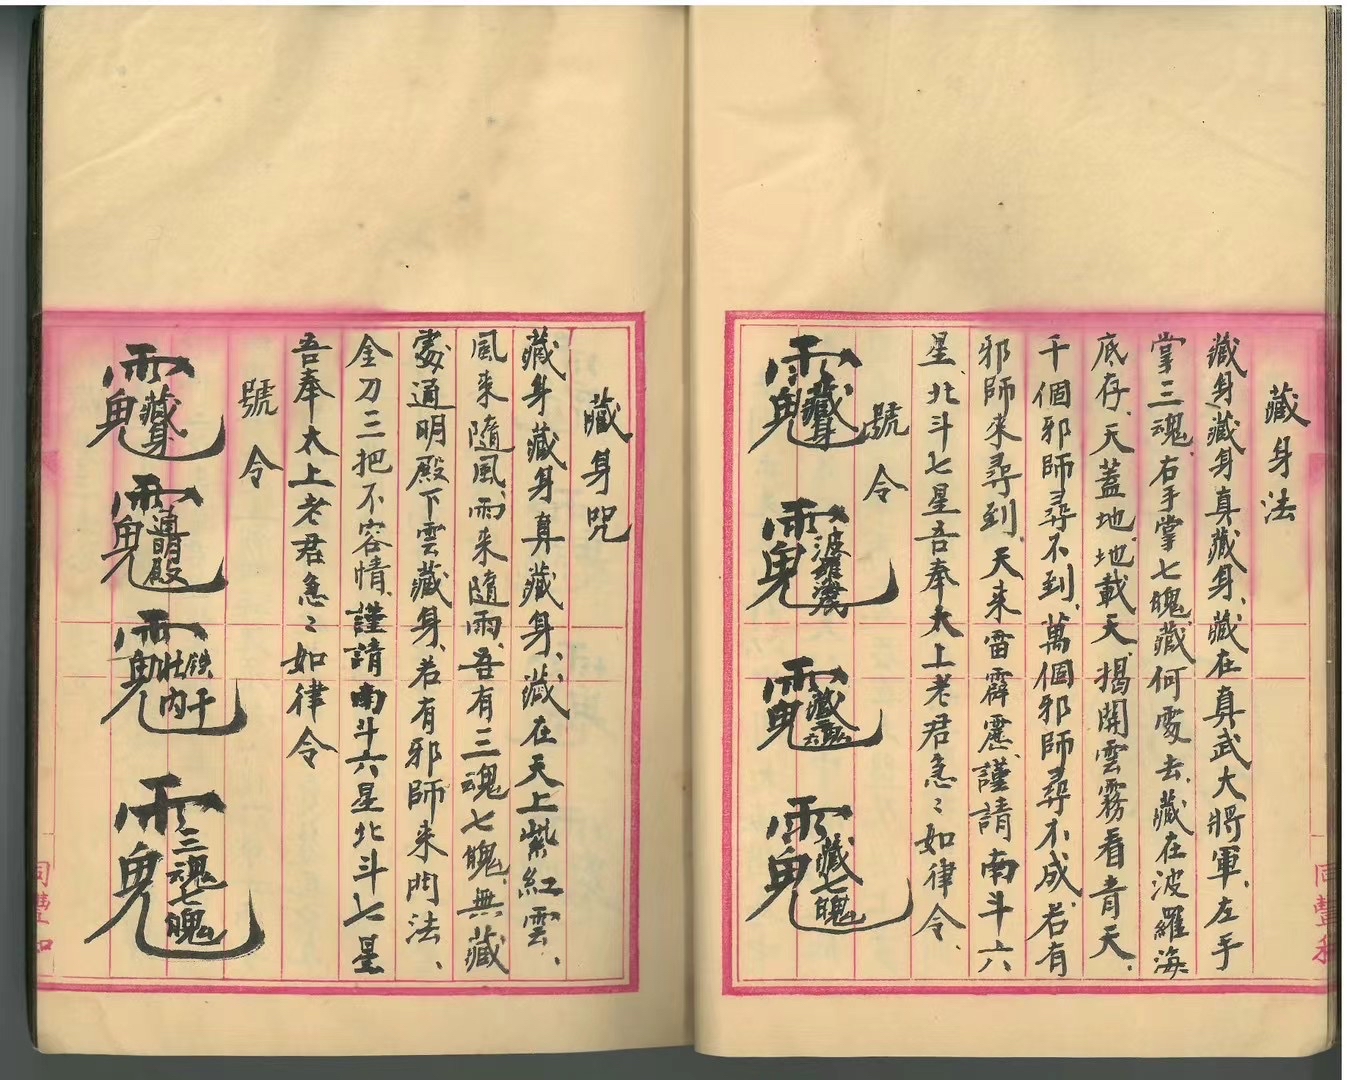 藏身法
藏身藏身真藏身、藏在真武大將軍、左手
掌三魂、右手掌七魄、藏何處去、藏在波羅海
底存、天蓋地、地載天、揭開雲霧看青天、
千個邪師尋不到、萬個邪師尋不成、若有
邪師來尋到、天來雷霹靂、謹請南斗六
星、北斗七星吾奉太上老君急〻如律令、
號令
藏身
波羅海
藏三魂
藏七魄
藏身咒
藏身藏身真藏身、藏在天上紫紅雲、
風來隨風、雨來隨雨、吾有三魂七魄、無藏
處、通明殿下雲藏身、若有邪師來鬥法、
金刀三把不容情、謹請南斗六星北斗七星
吾奉太上老君急〻如律令
號令
藏身
通明殿
鉄牡千內
三魂七魄
同豐和
同豐和